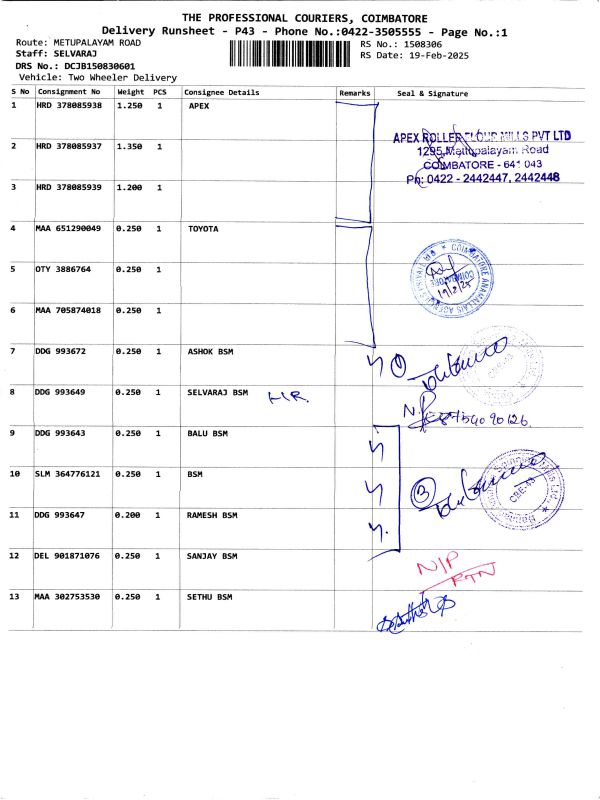 THE PROFESSIONAL COURIERS, COIMBATORE
Delivery Runsheet - P43 - Phone No.:0422-3505555 - Page No.:1
Route: METUPALAYAM ROAD RS No.: 1508306
Staff: SELVARAJ RS Date: 19-Feb-2025
DRS No.: DCJB150830601
Vehicle: Two Wheeler Delivery
S No Consignment No Weight PCS Consignee Details Remarks Seal & Signature
1 HRD 378085938 1.250 1 APEX
APEX ROLLER FLOUR MILLS PVT LTD
2 HRD 378085937 1.350 1 1295, Mettupalayam Road
COIMBATORE - 641 043
3 HRD 378085939 1.200 1 Ph: 0422 - 2442447, 2442448
4 MAA 651290049 0.250 1 TOYOTA
5 OTY 3886764 0.250 1 COIMBATORE ANAMALLAIS AGENCIES PRIVATE
COIMBATORE
19/2/25
6 MAA 705874018 0.250 1
7 DDG 993672 0.250 1 ASHOK BSM 1
CBE-43
8 DDG 993649 0.250 1 SELVARAJ BSM
9 DDG 993643 0.250 1 BALU BSM
10 SLM 364776121 0.250 1 BSM 3
CBE-43
11 DDG 993647 0.200 1 RAMESH BSM
12 DEL 901871076 0.250 1 SANJAY BSM N/P
RTN
13 MAA 302753530 0.250 1 SETHU BSM